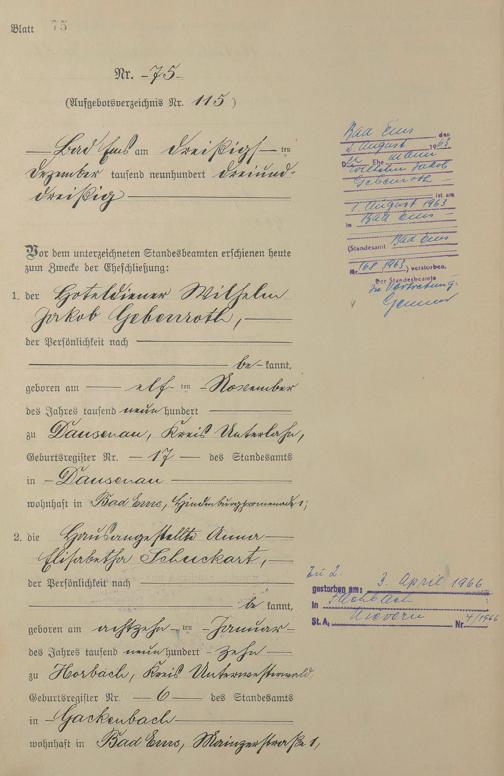 Blatt 75
Nr. -75-
(Aufgebotsverzeichnis Nr. 115)
Bad Ems am dreißigsten
Dezember tausend neunhundert dreiund-
dreißig
Vor dem unterzeichneten Standesbeamten erschienen heute
zum Zwecke der Eheschließung:
1. der Hoteldiener Wilhelm
Jakob Gebenroth,
der Persönlichkeit nach
be-kannt,
geboren am elf-ten November
des Jahres tausend neunhundert
zu Dausenau, Kreis Unterlahn,
Geburtsregister Nr. -17- des Standesamts
in -Dausenau
wohnhaft in Bad Ems, Hindenburgpromenade 1;
2. die Hausangestellte Anna
Elisabetha Schuckart,
der Persönlichkeit nach
be kannt,
geboren am achtzehn-ten Januar
des Jahres tausend neunhundert zehn
zu Horbach, Kreis Unterwesterwald,
Geburtsregister Nr. -6- des Standesamts
in -Gackenbach
wohnhaft in Bad Ems, Mainzerstraße 1,
Bad Ems den
2. August 1963
Der Ehemann
Wilhelm Jakob
Gebenroth
ist am
1. August 1963
in Bad Ems
(Standesamt Bad Ems
Nr. 168/1963) verstorben.
Der Standesbeamte
In Vertretung:
Zu 2.
gestorben am: 3. April 1966
in
St. A. Nievern Nr. 4/1966